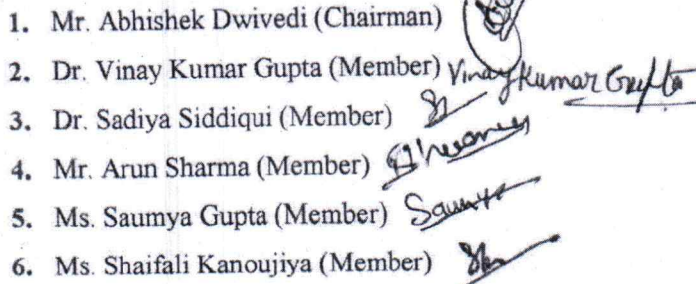 1. Mr. Abhishek Dwivedi (Chairman)
2. Dr. Vinay Kumar Gupta (Member) Vinay Kumar Gupta
3. Dr. Sadiya Siddiqui (Member)
4. Mr. Arun Sharma (Member)
5. Ms. Saumya Gupta (Member) Saumya
6. Ms. Shaifali Kanoujiya (Member)